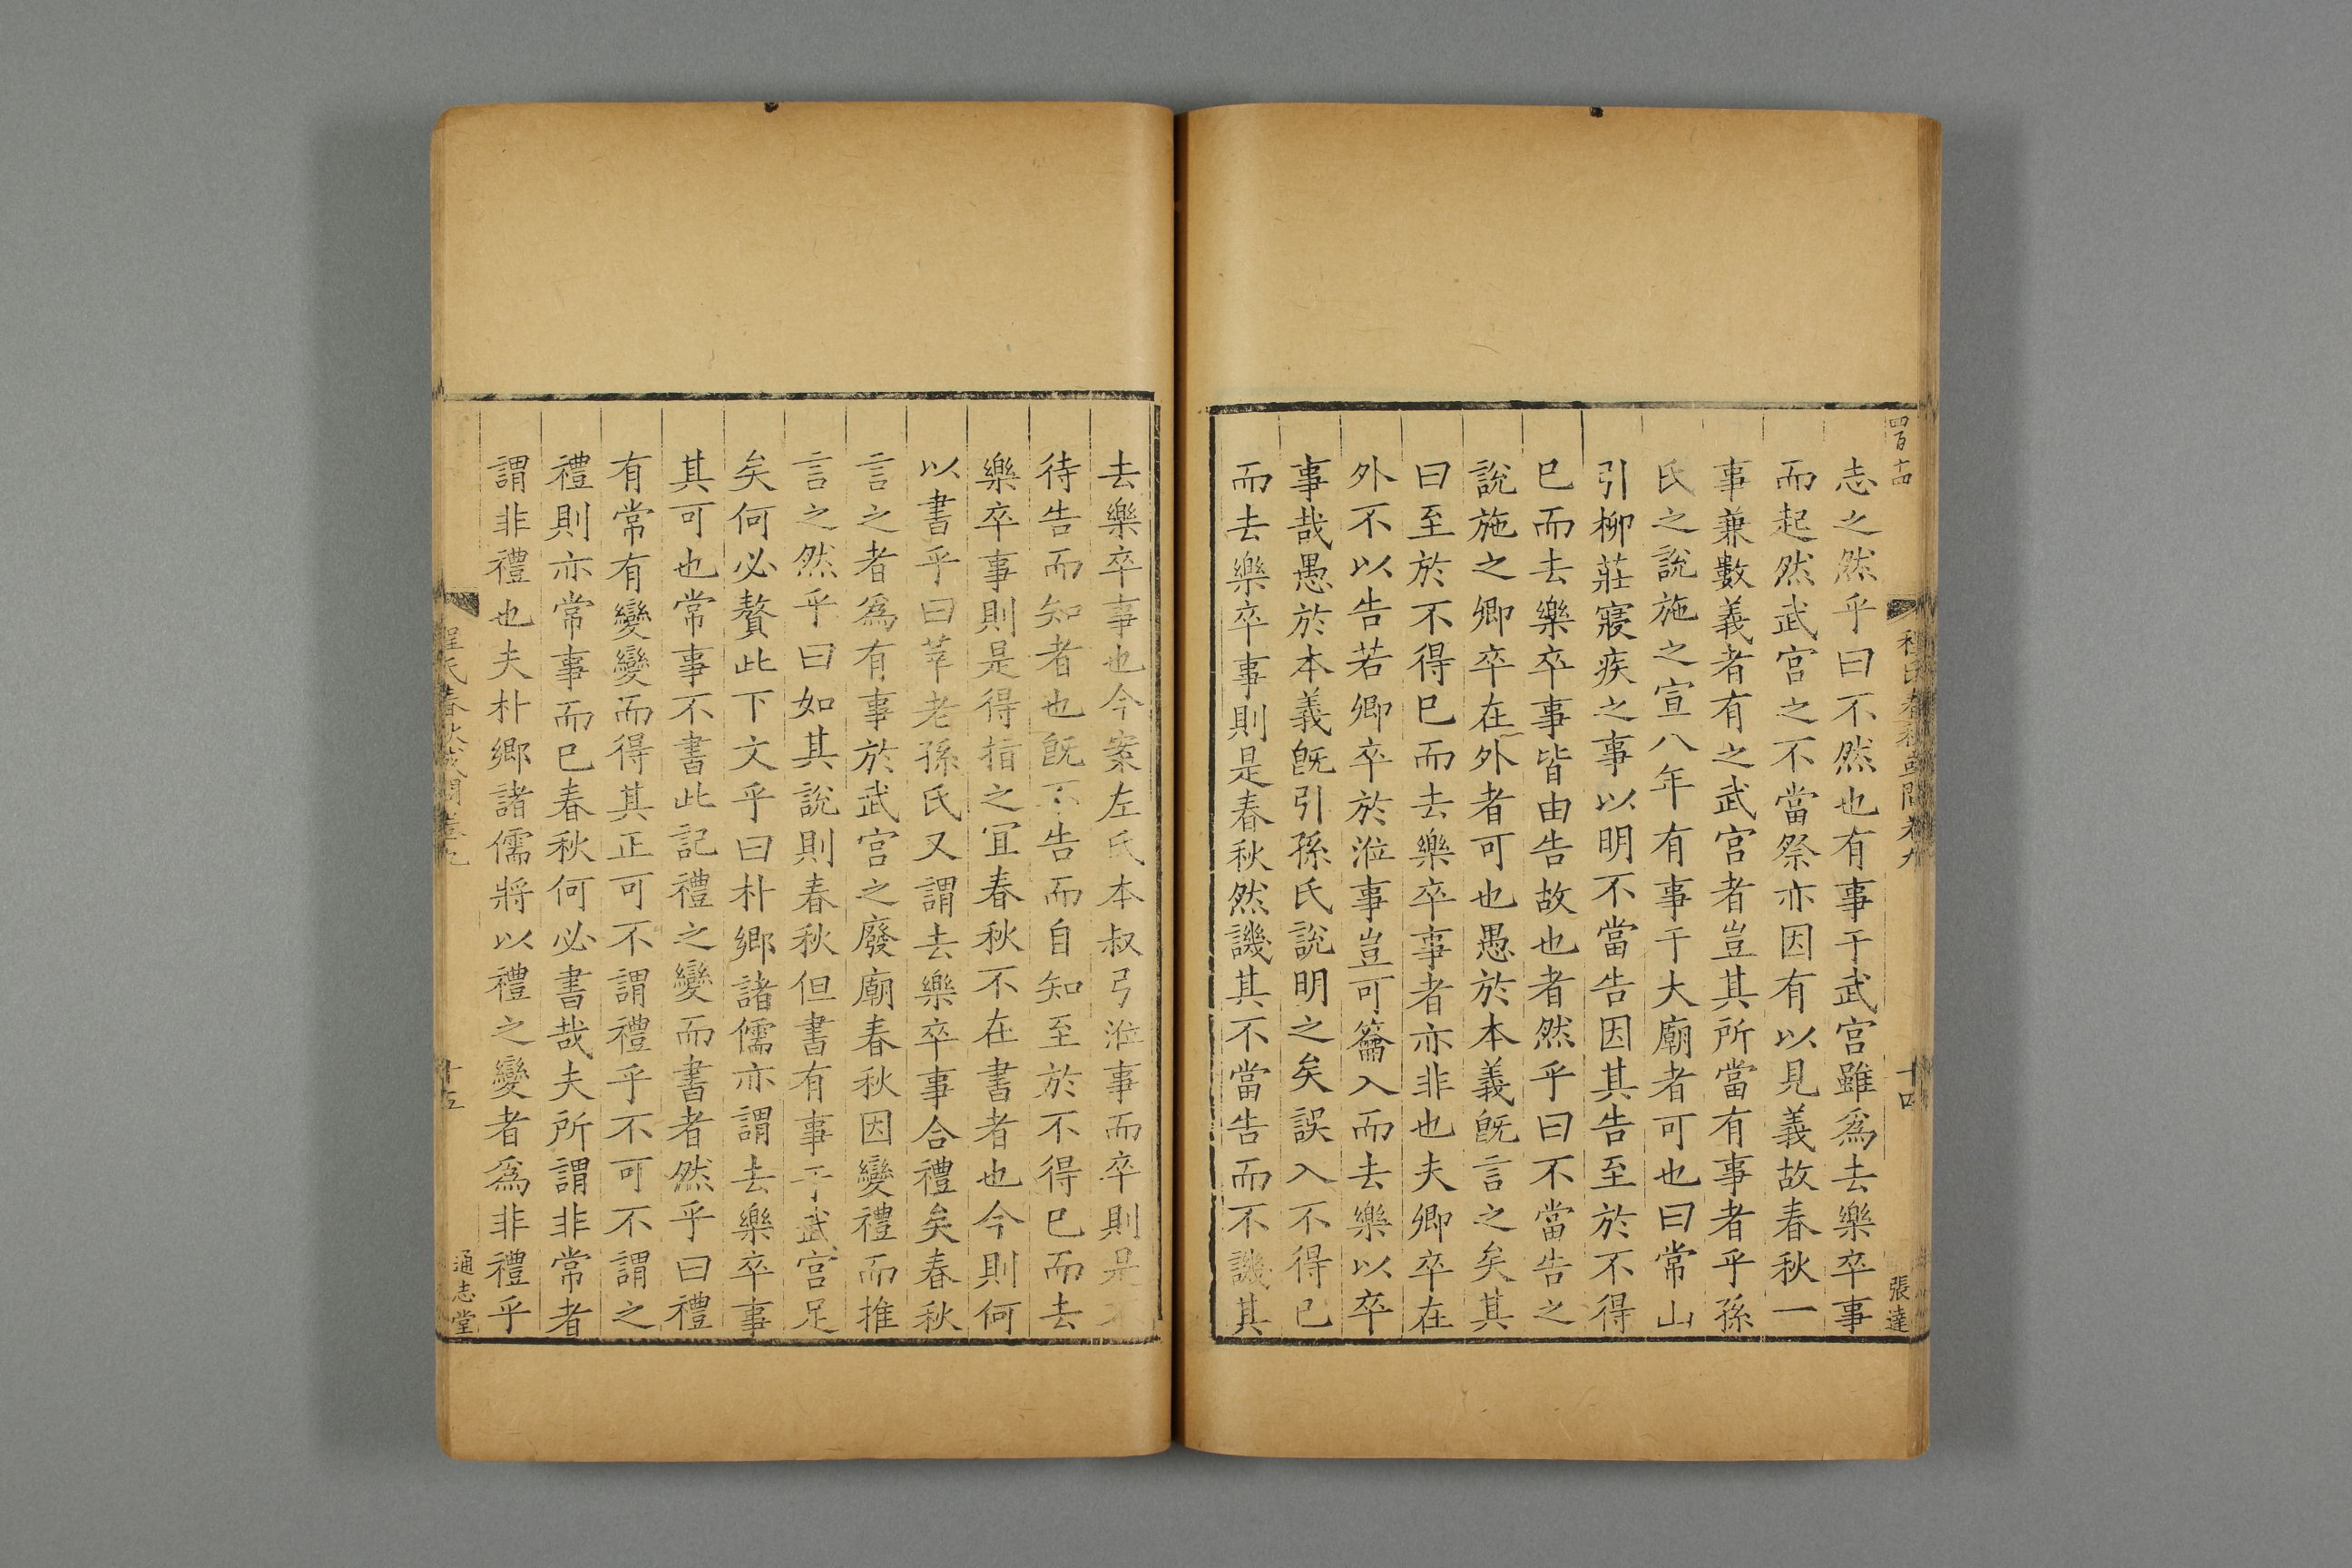 四百十四
程氏春秋或問卷九
十四
張達
志之然乎曰不然也有事于武宮雖爲去樂卒事
而起然武宮之不當祭亦因有以見義故春秋一
事兼數義者有之武宮者豈其所當有事者乎孫
氏之說施之宣八年有事于大廟者可也曰常山
引柳莊寢疾之事以明不當告因其告至於不得
巳而去樂卒事皆由告故也者然乎曰不當告之
說施之卿卒在外者可也愚於本義旣言之矣其
曰至於不得巳而去樂卒事者亦非也夫卿卒在
外不以告若卿卒於涖事豈可籥入而去樂以卒
事哉愚於本義旣引孫氏說明之矣誤入不得已
而去樂卒事則是春秋然譏其不當告而不譏其
去樂卒事也今案左氏本叔弓涖事而卒則是
待告而知者也旣不告而自知至於不得巳而去
樂卒事則是得措之宜春秋不在書者也今則何
以書乎曰莘老孫氏又謂去樂卒事合禮矣春秋
言之者爲有事於武宮之廢廟春秋因變禮而推
言之然乎曰如其說則春秋但書有事于武宮足
矣何必贅此下文乎曰朴鄉諸儒亦謂去樂卒事
其可也常事不書此記禮之變而書者然乎曰禮
有常有變變而得其正可不謂禮乎不可不謂之
禮則亦常事而巳春秋何必書哉夫所謂非常者
謂非禮也夫朴鄉諸儒將以禮之變者爲非禮乎
程氏春秋或問卷九
十五
通志堂